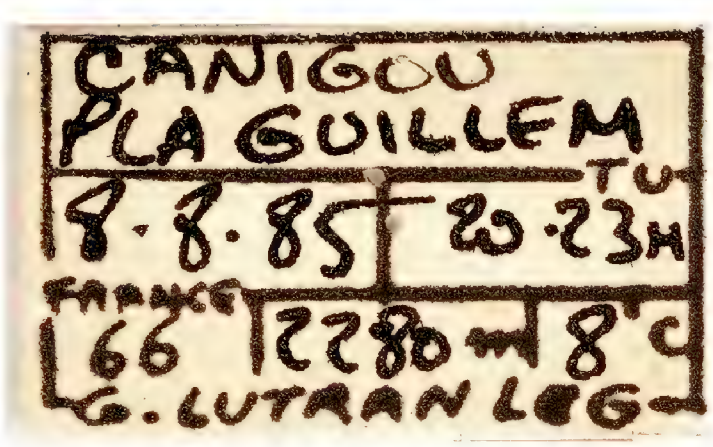 CANIGOU
PLA GUILLEM
8.8.85 20.23H TU
FRANCE
66 2280 m 8°C
G. LUTRAN LEG